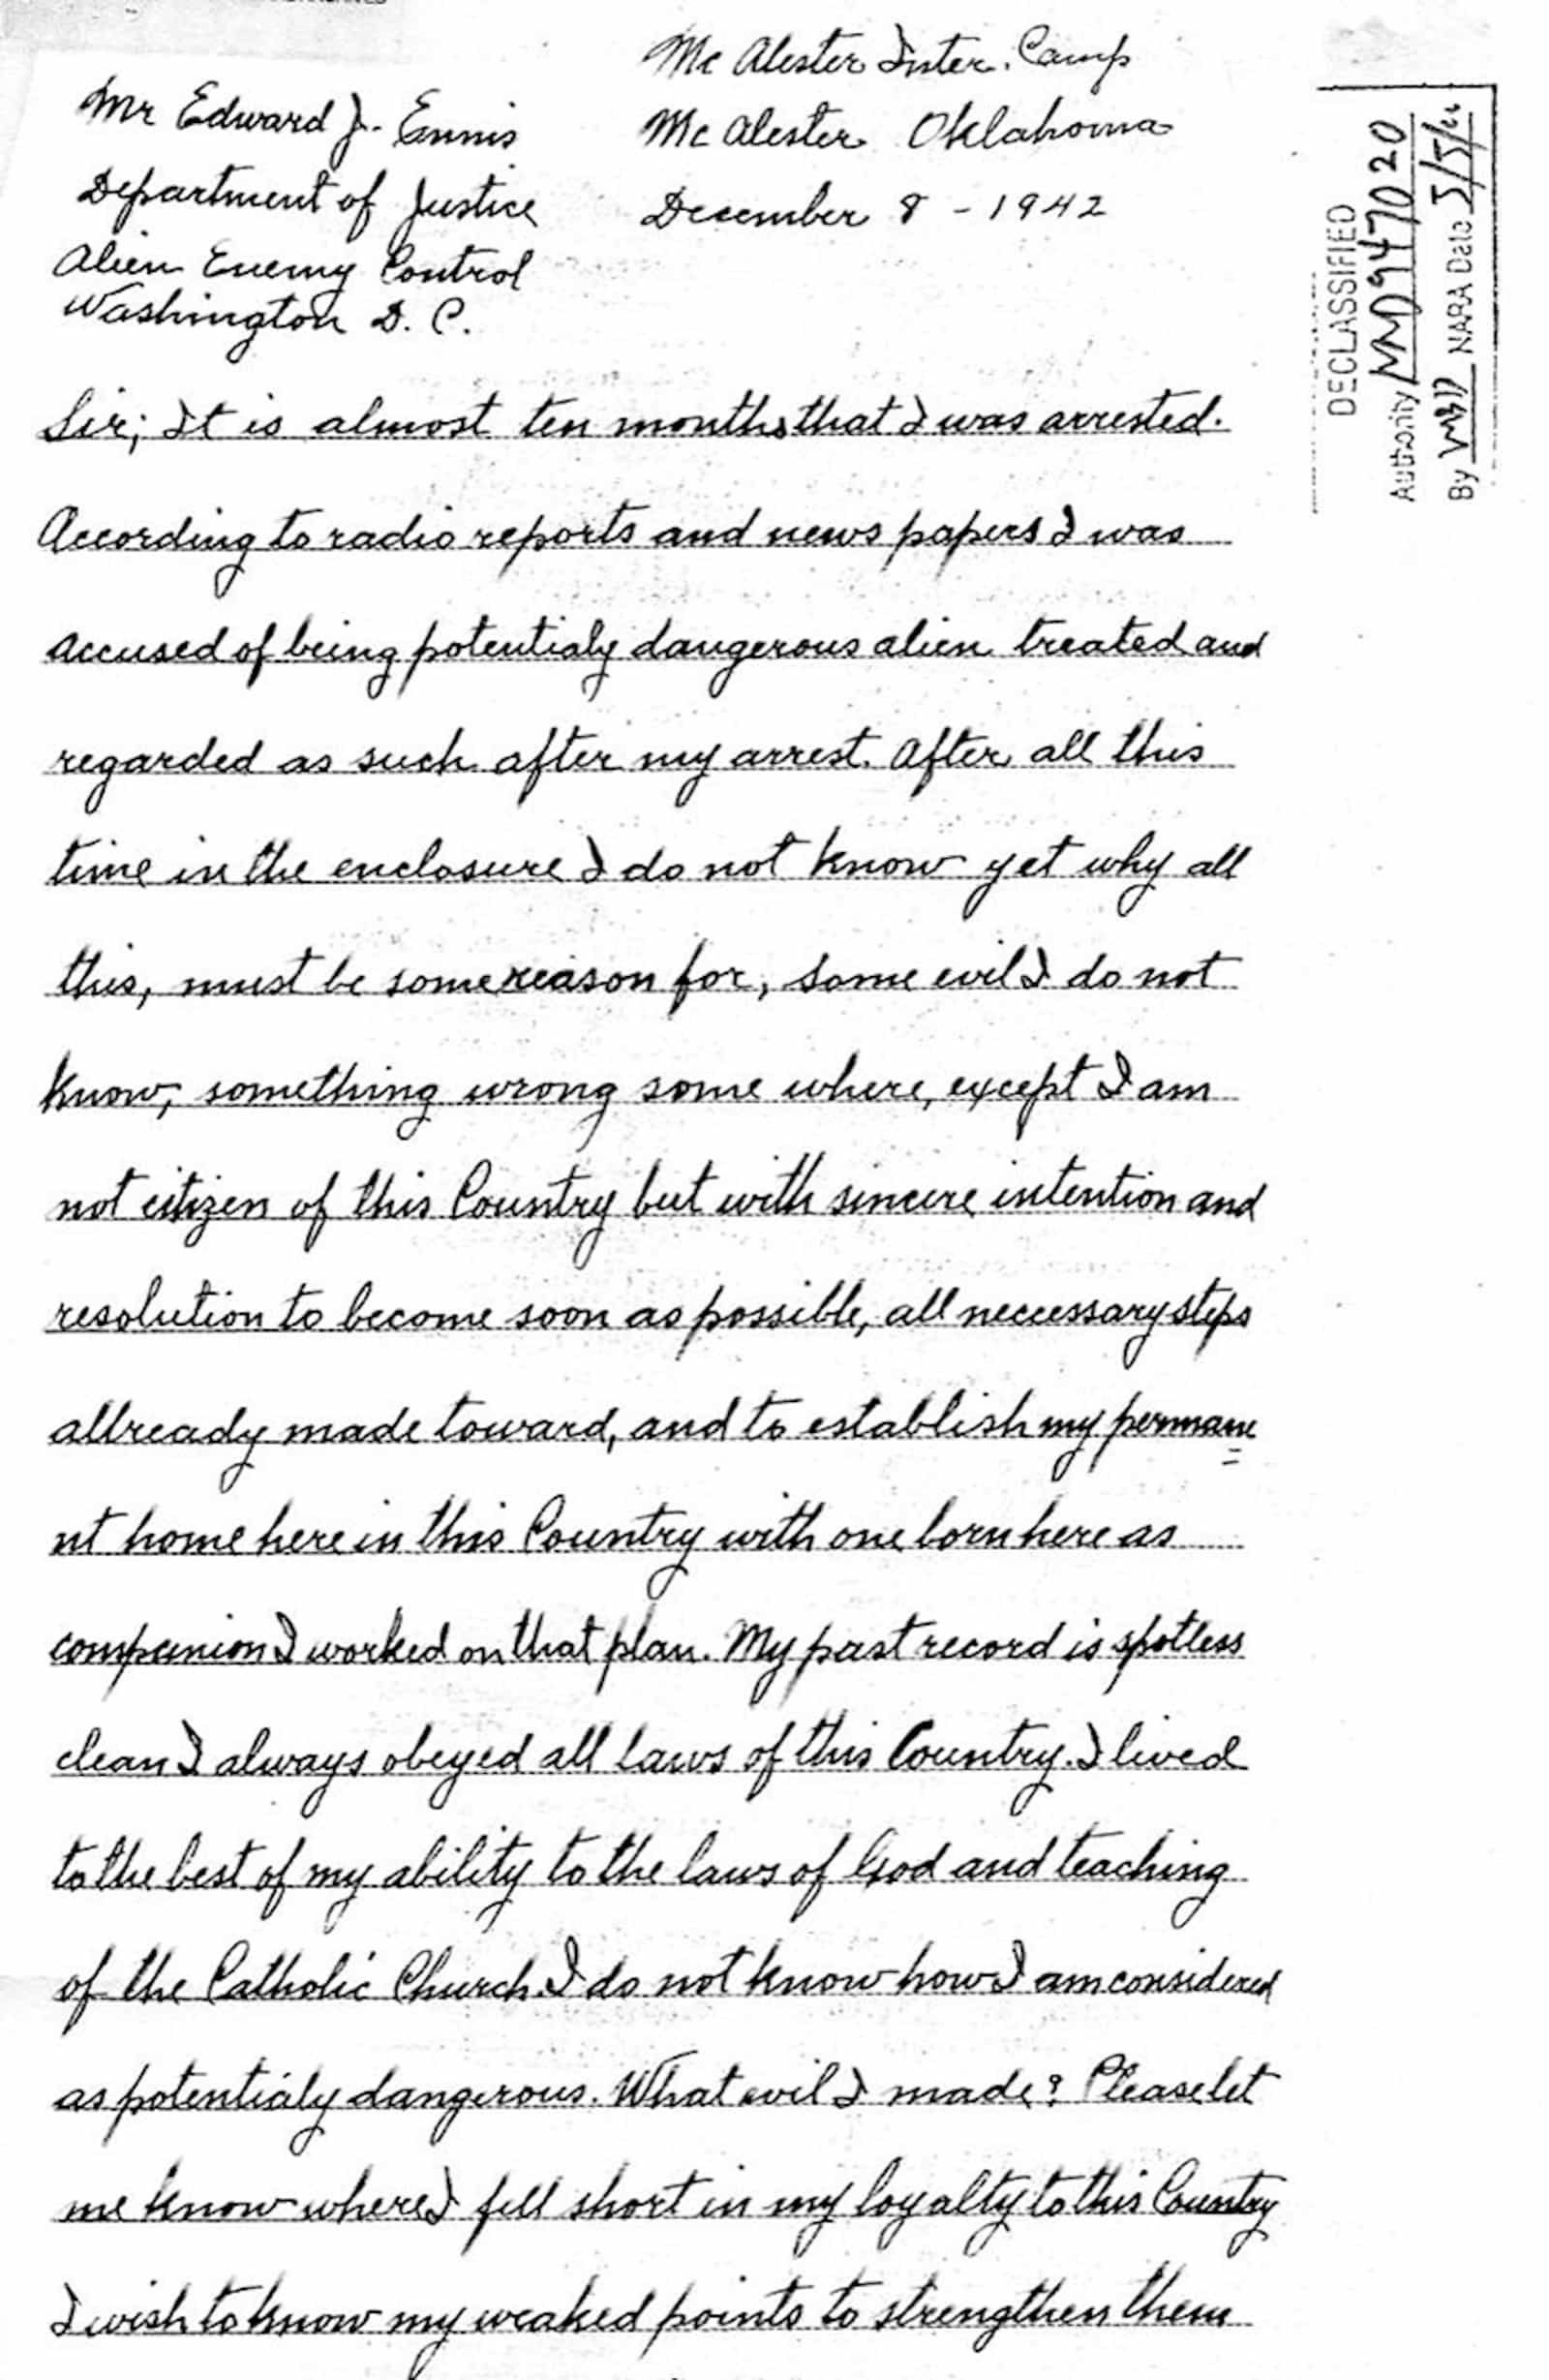 Mc Alester Inter. Camp
Mr Edward J. Ennis
Mc Alester Oklahoma
Department of Justice
December 8 - 1942
Alien Enemy Control
Washington D. C.
Sir; It is almost ten months that I was arrested.
According to radio reports and news papers I was
accused of being potentialy dangerous alien treated and
regarded as such after my arrest. After all this
time in the enclosure I do not know yet why all
this, must be some reason for, some evil I do not
know, something wrong some where, except I am
not citizen of this Country but with sincere intention and
resolution to become soon as possible, all neccessary steps
allready made toward, and to establish my permane
=
nt home here in this Country with one born here as
companion I worked on that plan. My past record is spotless
clean I always obeyed all laws of this Country. I lived
to the best of my ability to the laws of God and teaching
of the Catholic Church. I do not know how I am considered
as potentialy dangerous. What evil I made? Please let
me know where I fell short in my loyalty to this Country
I wish to know my weaked points to strengthen them
DECLASSIFIED
Authority NND947020
By NARA Date